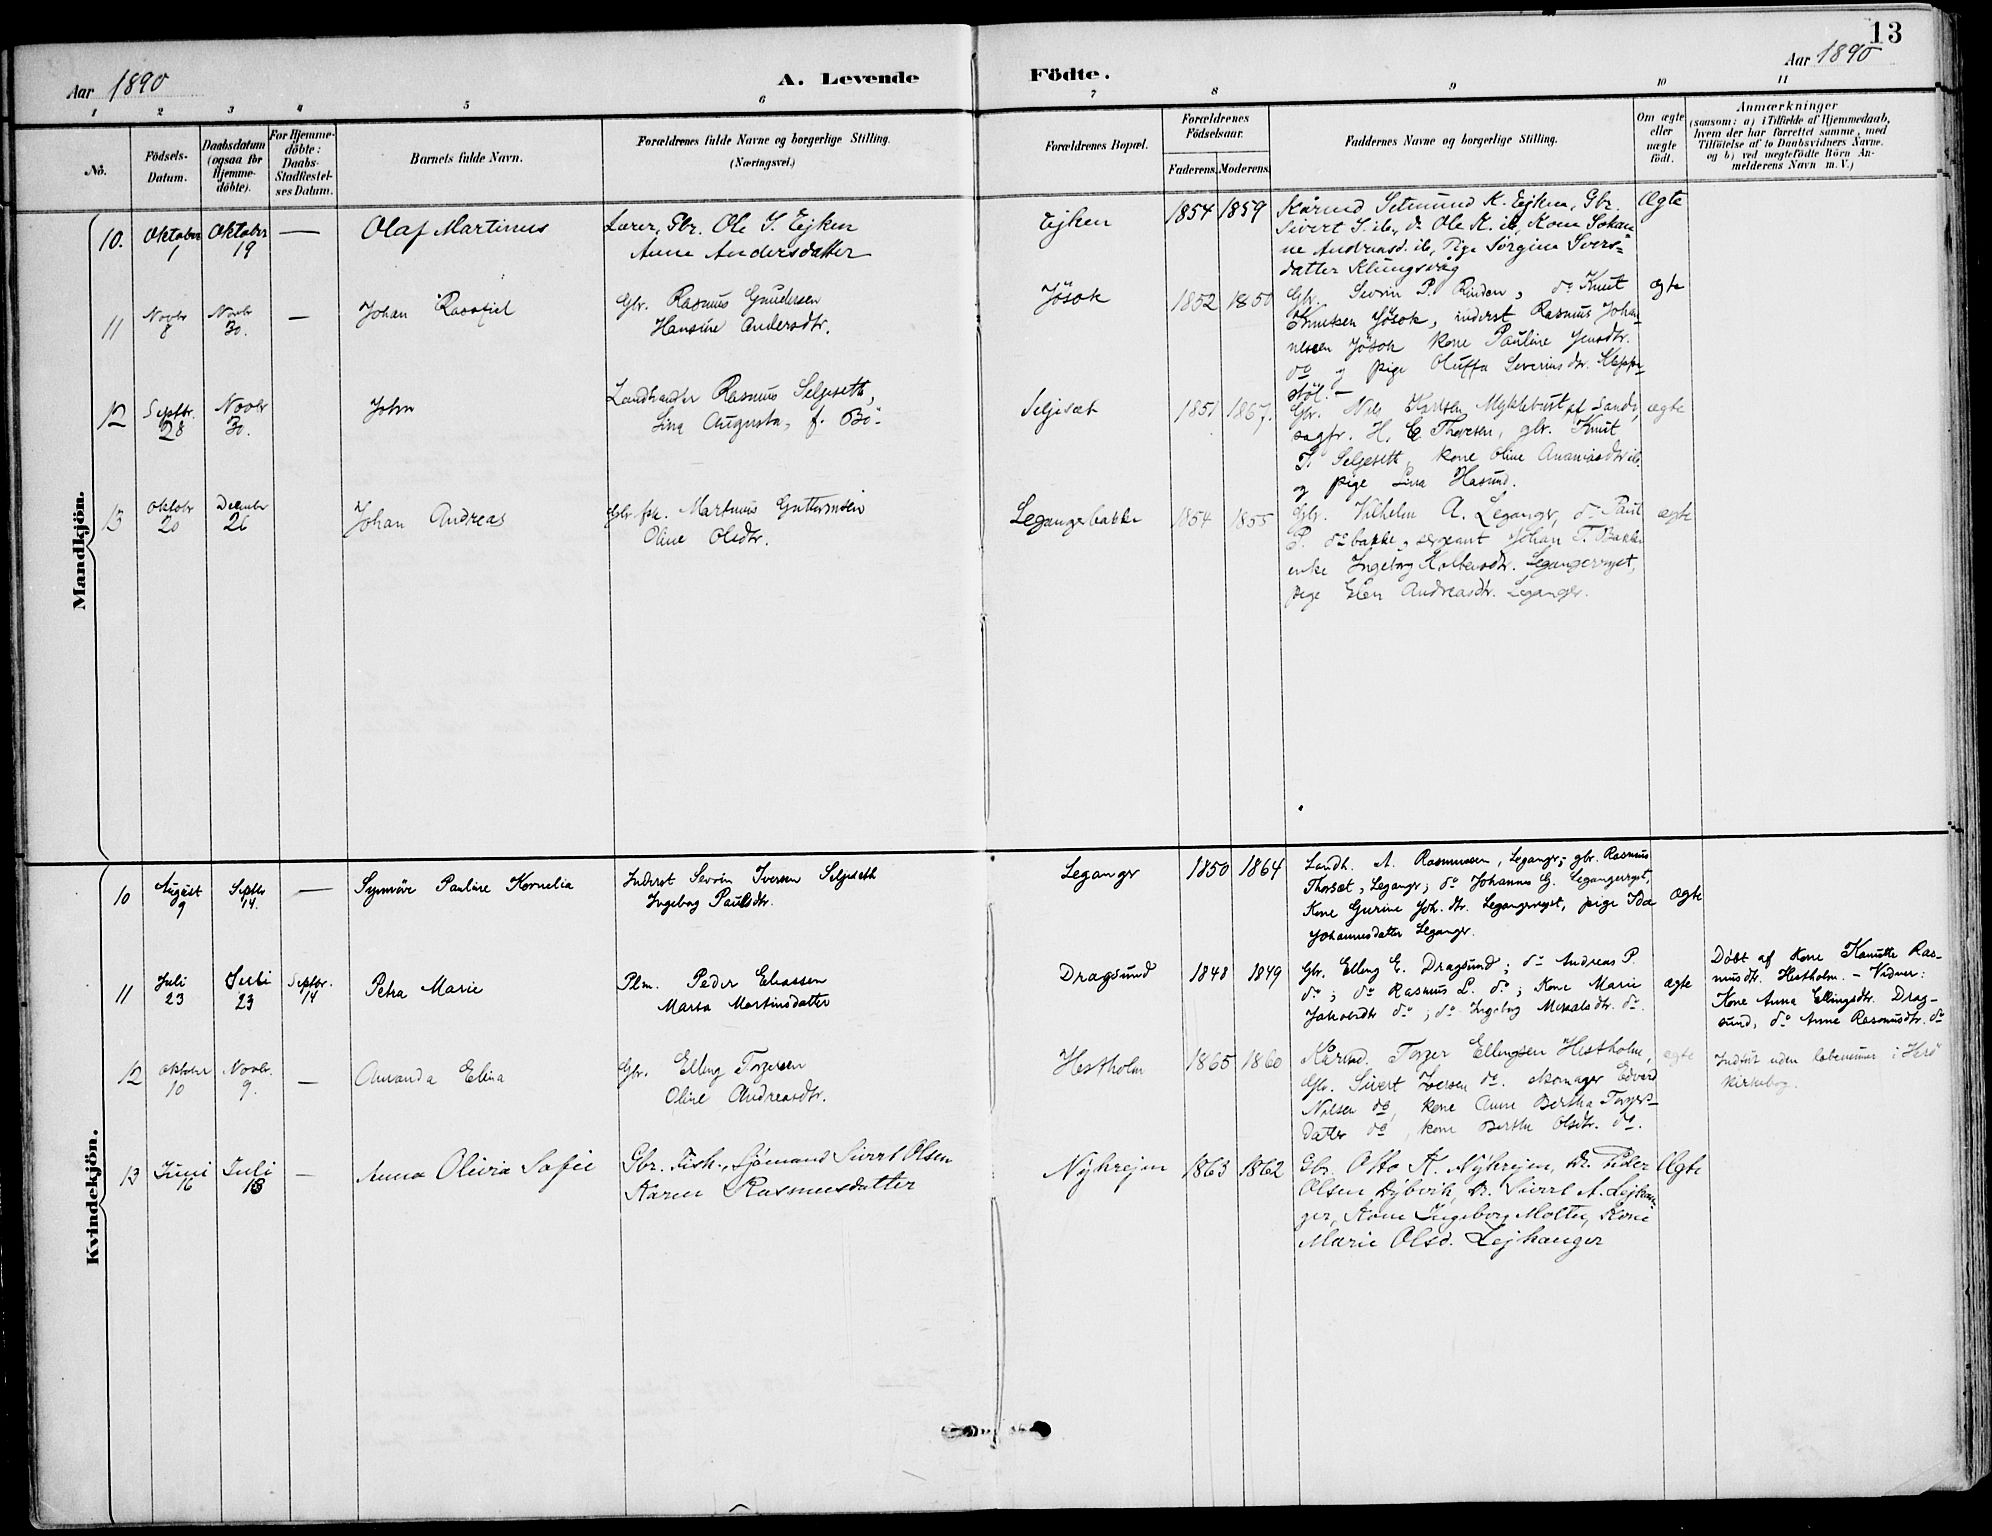 13
Aar 1890
A. Levende
Födte.
Aar 1890
1 2 3 4 5 6 7 8 9 10 11
Nö.
Födsels-
Datum.
Daabsdatum
(ogsaa for
Hjemme-
döbte).
For Hjemme-
döbte:
Daabs-
Stadfæstel-
ses Datum.
Barnets fulde Navn.
Forældrenes fulde Navne og borgerlige Stilling.
(Næringsvei.)
Forældrenes Bopæl.
Forældrenes
Födselsaar.
Faderens. Moderens.
Faddernes Navne og borgerlige Stilling.
Om ægte
eller
uægte
födt.
Anmærkninger
(saasom: a) i Tilfælde af Hjemmedaab,
hvem der har forrettet samme, med
Tilföielse af to Daabsvidners Navne.
og b) ved uægtefödte Börn An-
melderens Navn m. V.)
Mandkjön.
10. Oktober 1 Oktober 19 — Olaf Martinus
Lærer, Gbr. Ole S. Ejken
Anne Andersdatter
Ejken 1854 1859
Kårmd Setmund K. Ejken, Gbr.
Sivert S. ib., do Ole K. ib, Kone Johan
ne Andreasd. ib, Pige Sørgine Sivers=
datter Klungsvåg
Ægte
11 Novbr 8 Novbr 30. — Johan Raastist
Gbr. Rasmus Gundersen
Hansine Andersdtr.
Jøsok 1852 1850
Gbr. Sevrin P. Rinden, do Knut
Knutsen Jøsok, inderst Rasmus Johan-
nessen Jøsok kone Pauline Jensdtr.
do og pige Oluffa Severinsdtr. Kleppe-
støl. —
ægte
12 Septbr. 28 Novbr 30. John
Landhandler Rasmus Seljeseth,
Lina Augusta, f. Bö.
Seljeset 1851 1867.
Gbr. Nils Karlsen Myklebust af Sande,
sagfr. H. C. Thoresen, gbr. Knut
K. Seljeseth, kone Oline Ananiasdtr ib.
og pige Lina Hasund.
ægte
13 Oktobr 20 Decembr 26 Johan Andreas
Gbr. fsk. Martinus Guttormsen
Oline Olsdtr.
Legangerbakke 1854 1855
Gbr. Vilhelm A. Leganger, do Paul
P. do bakke, sergeant Johan T. Bakke
enke Ingeborg Kolbensdtr. Legangerryst,
pige Elen Andreasdtr. Leganger.
ægte
Kvindekjön.
10 August 9 Septbr 14. — Synnöve Pauline Kornelia
Inderst Sevrin Iversen Seljeseth
Ingebog Paulsdtr.
Leganger 1850 1864
Landh. A. Rasmussen, Leganger; gbr. Rasmus
Thorsæt, Leganger; do Johannes G. Legangerryst,
Kone Gurine Joh. dtr. Legangerryst, pige Ida
Johannesdatter Leganger.
Ægte
11 Juli 23 Juli 23 Septbr. 14 Petra Marie
Plm. Peder Eliassen
Marta Martinsdatter
Dragsund 1848 1849
Gbr. Elling E. Dragsund; do Andreas P.
do; do Rasmus L. do; Kone Marie
Jakobsdtr do; do Ingeborg Mikalsdtr. do.
ægte
Döbt af Kone Kanutte Ras-
musdtr. Hestholm. — Vidner:
Kone Anna Ellingsdtr. Drag-
sund, do Anne Rasmusdtr. do
12 Oktober 10 Novbr. 9. — Amanda Elina
Gbr. Elling Torgersen
Oline Andreasdtr.
Hestholm 1865 1860
Kårmd. Torger Ellingsen Hestholm,
Gbr. Sivert Iversen do. skomager Edvard
Nilsen do, kone Anne Bertha Torgers-
datter do, kone Berthe Olsdtr. do.
ægte
Indført uden löbenumer i Herö
kirkebog.
13 Juni 16 Juli 13 — Anna Olivia Sofie
Gbr. Fisk., Sjömand Sivert Olsen
Karen Rasmusdatter
Nýhrejm 1863 1862
Gbr. Otto K. Nýhrejm, Do. Peder
Olsen Dýbvik, Do. Sivert A. Lejhan-
ger, Kone Ingeborg Moltu, Kone
Marie Olsd. Lejhanger
Ægte